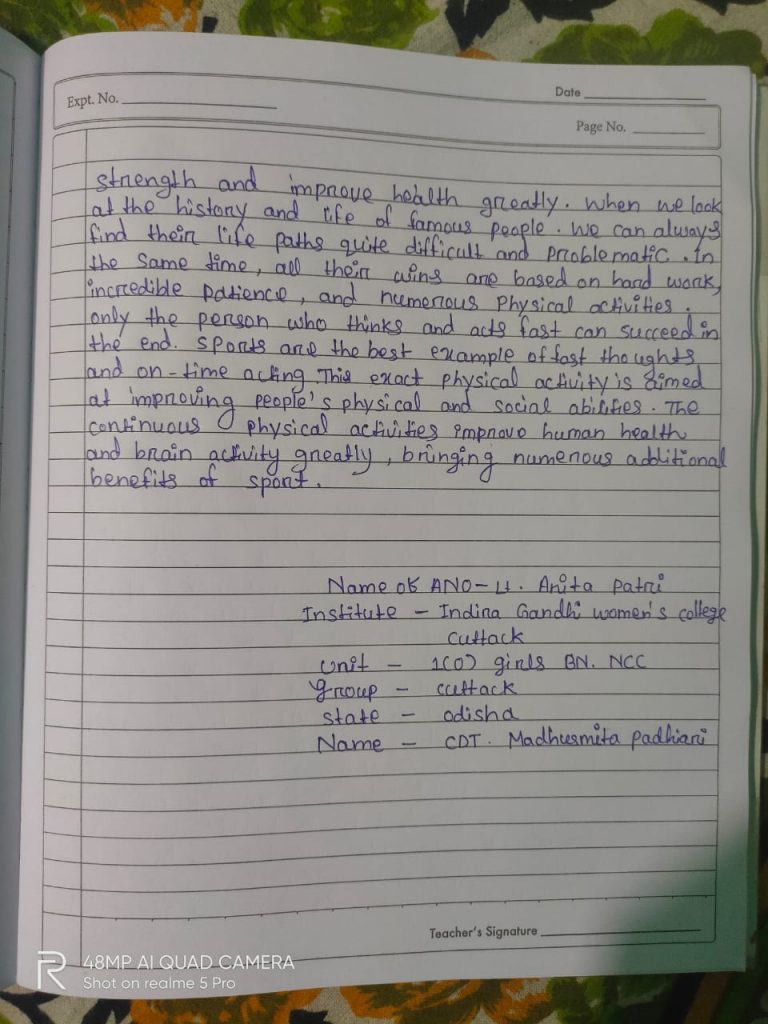 Expt. No.
Date
Page No.
strength and improve health greatly. When we look
at the history and life of famous people. We can always
find their life paths quite difficult and problematic. In
the same time, all their wins are based on hard work,
incredible patience, and numerous physical activities.
only the person who thinks and acts fast can succeed in
the end. sports are the best example of fast thoughts
and on-time acting. This exact physical activity is aimed
at improving people's physical and social abilities. The
continuous physical activities improve human health
and brain activity greatly, bringing numerous additional
benefits of sport.
Name of ANO - Lt. Anita Patri
Institute - Indira Gandhi women's college
cuttack
Unit - 1(O) girls BN. NCC
Group - cuttack
State - odisha
Name - CDT. Madhusmita Padhiari
Teacher's Signature
R 48MP AI QUAD CAMERA
Shot on realme 5 Pro